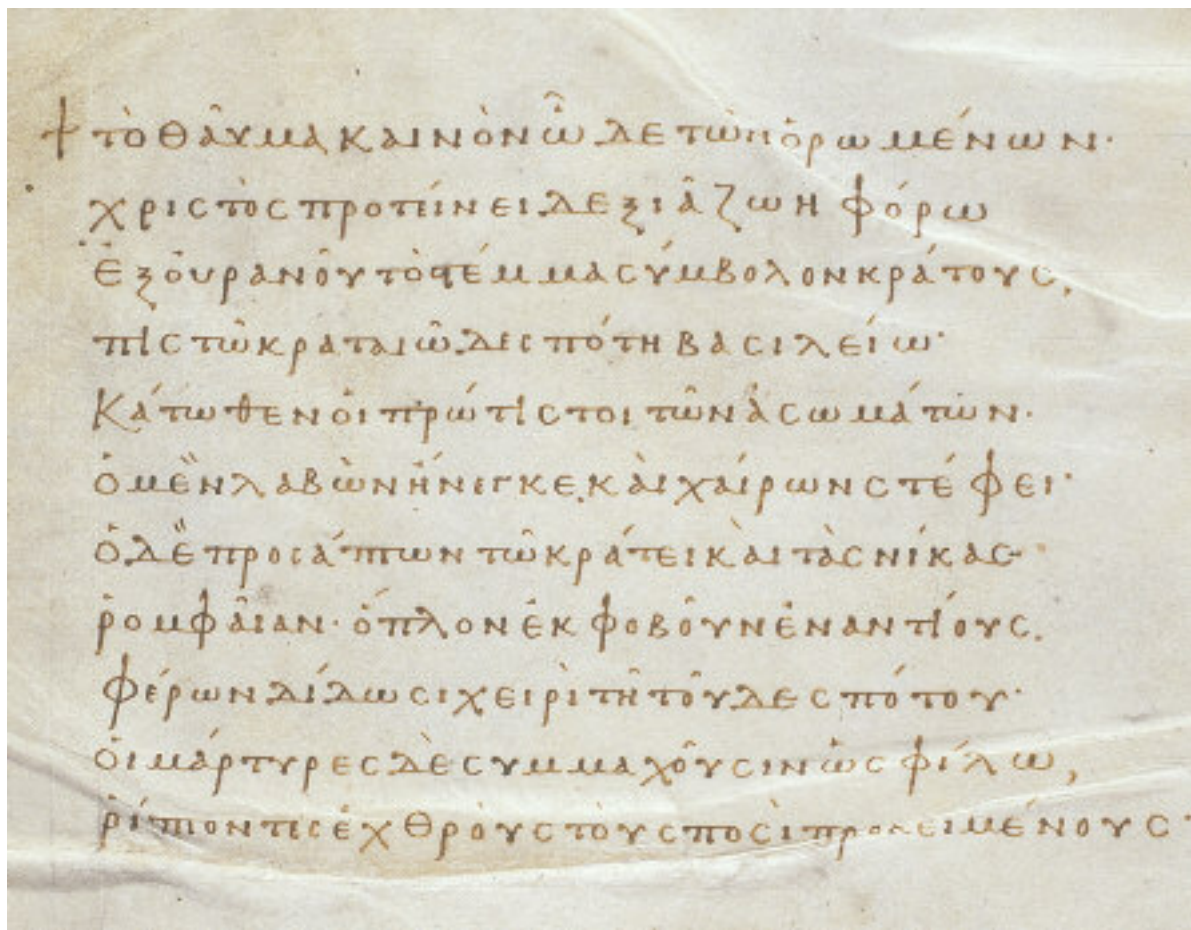 † τὸ θαῦμα καινὸν ὧδε τῶν ὁρωμένων·
χριστὸς προτείνει δεξιᾶ ζωηφόρω
ἐξ οὐρανοῦ τὸ στέμμα σύμβολον κράτους,
πιστῶ κραταιῶ δεσπότη βασιλείω·
κάτωθεν οἱ πρώτιστοι τῶν ἀσωμάτων·
ὁ μὲν λαβὼν ἤνεγκε, καὶ χαίρων στέφει·
ὁ δὲ προσάπτων τῶ κράτει καὶ τὰς νίκας·
ῥομφαίαν· ὅπλον ἐκφοβοῦν ἐναντίους.
φέρων δίδωσι χειρὶ τῆ τοῦ δεσπότου·
οἱ μάρτυρες δὲ συμμαχοῦσιν ὡς φίλω,
ῥίπτοντες ἐχθροὺς τοὺς ποσὶ προκειμένους